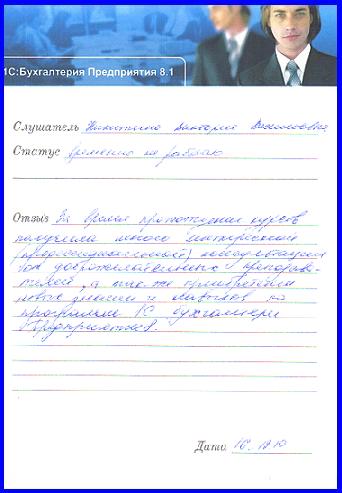 1С:Бухгалтерия Предприятия 8.1
Слушатель Никитина Виктория
Статус Временно не работаю
Отзыв За время прохождения курсов
получила много интересной
(профессиональной) консультации
от доброжелательных преподава-
телей, а так же приобретены
новые знания и навыков по
программе 1С бухгалтерия
Предприятия.
Дата 16.12.10